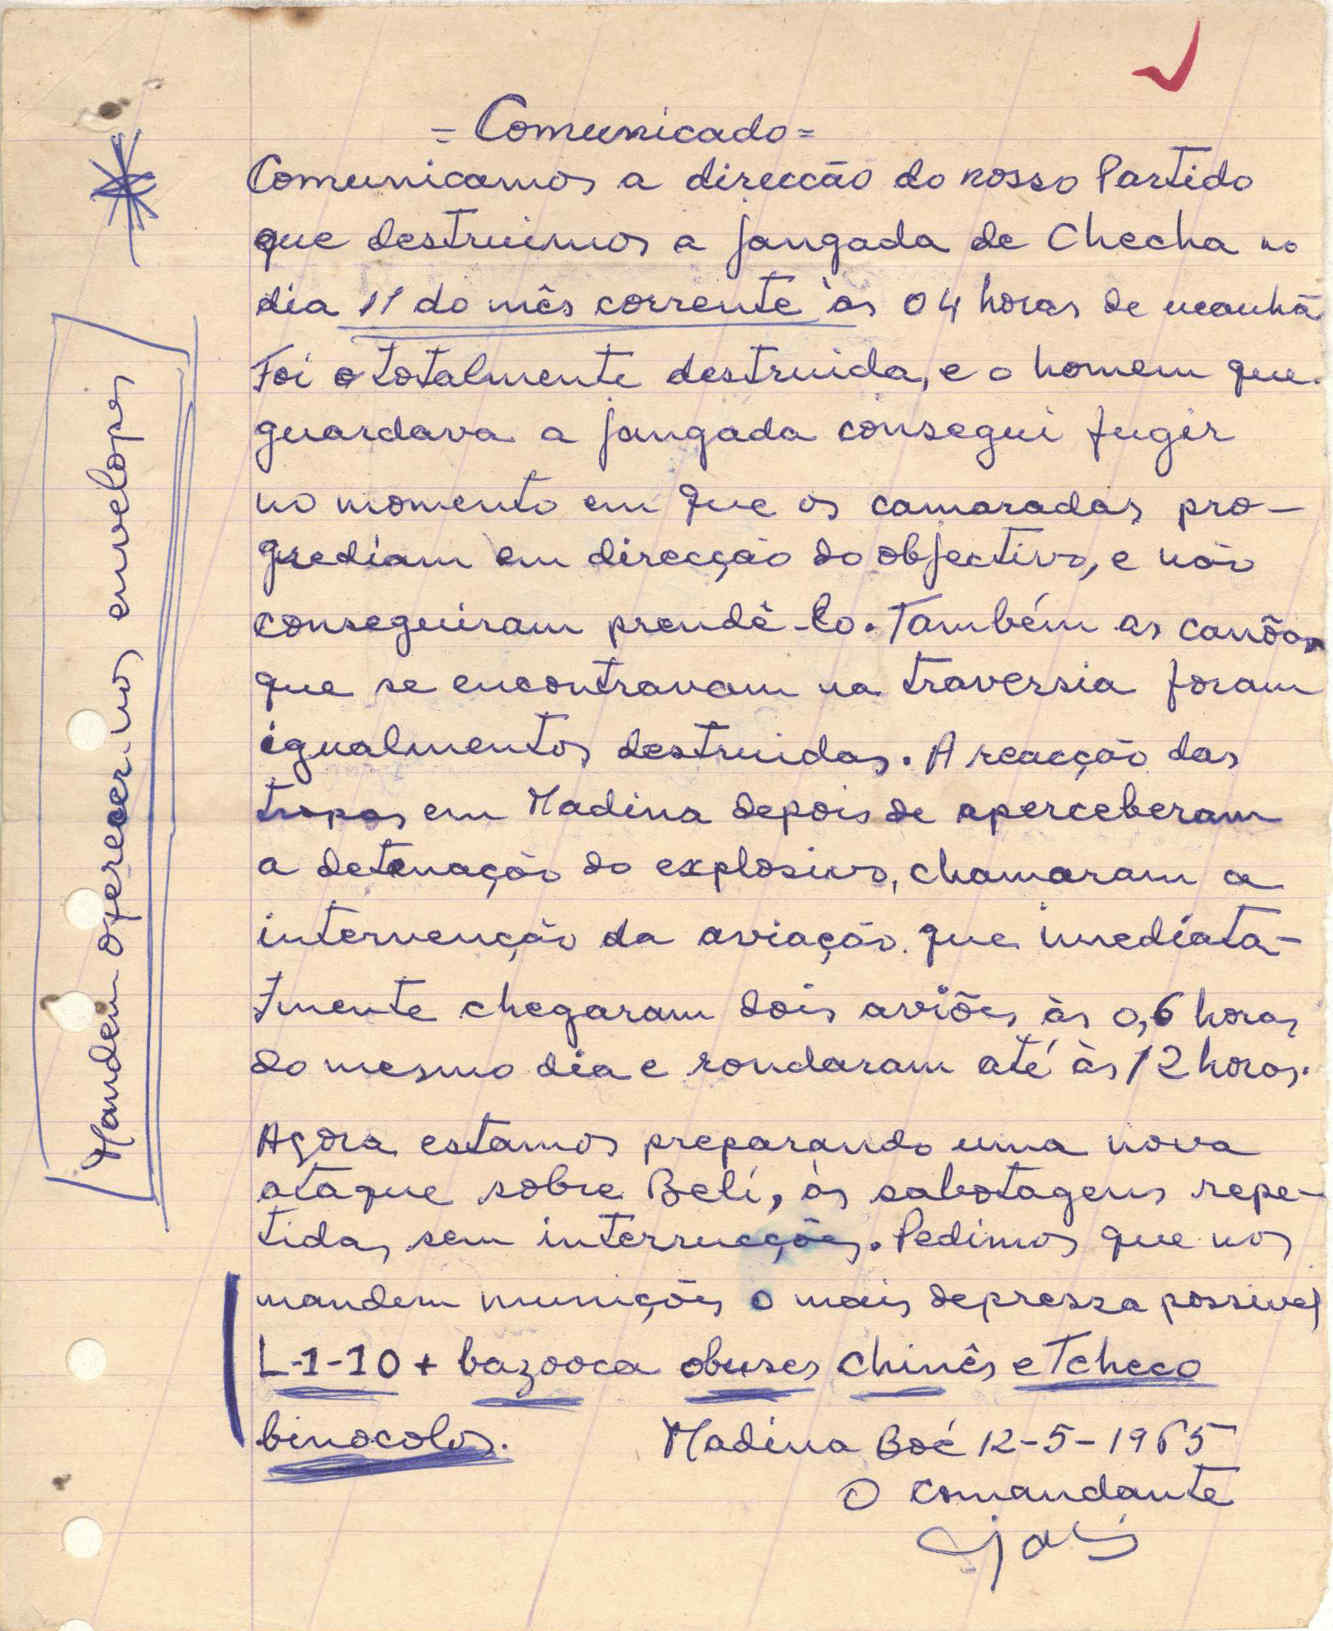 = Comunicado =
Comunicamos a direccão do nosso Partido
que destruimos a jangada de Checha no
dia 11 do mês corrente às 04 horas de manhã
Foi totalmente destruida, e o homem que
guardava a jangada consegui fugir
no momento em que os camaradas pro-
grediam em direcção do objectivo, e não
conseguiram prendê-lo. Também as canôas
que se encontravam na traversia foram
igualmentos destruidas. A reacção das
tropas em Madina depois de aperceberam
a detenação do explosivo, chamaram a
intervenção da aviação que imediata-
tmente chegaram dois aviões às 0,6 horas
do mesmo dia e rondaram até às 12 horas.
Agora estamos preparando uma nova
ataque sobre Beli, às sabotagens repe-
tidas sem interrucções. Pedimos que nos
mandem munições o mais depressa possivel
L-1-10 + bazooca obuses chinês e Tcheco
binocolos. Madina Boé 12-5-1965
O comandante
Mandem oferecer-nos envelopes